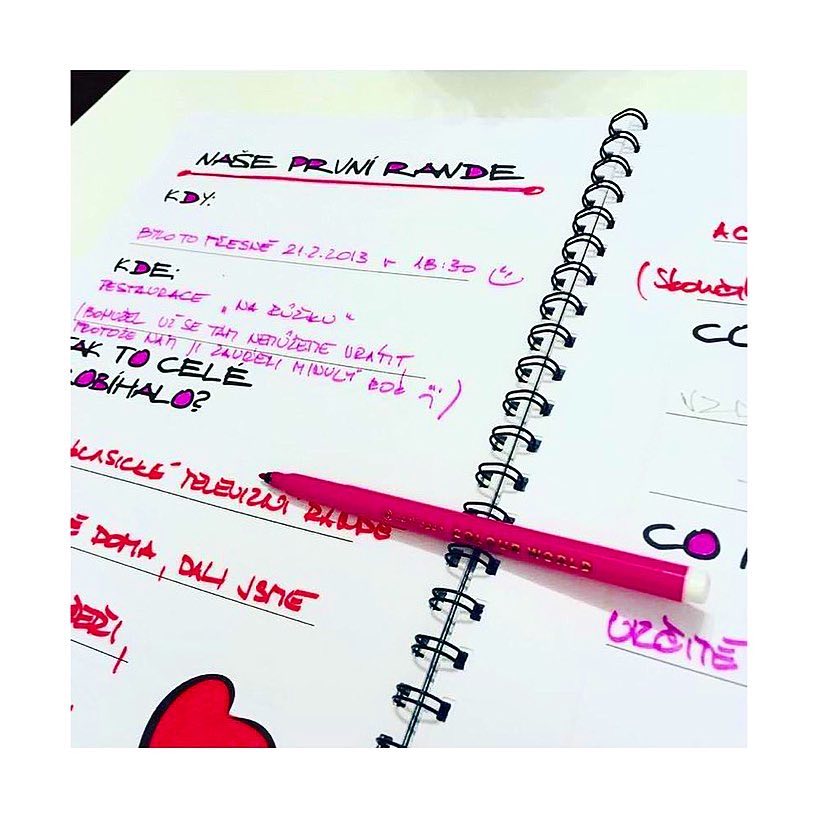 NAŠE PRVNÍ RANDE
KDY:
BYLO TO PŘESNĚ 21.2.2013 V 18:30
KDE:
RESTAURACE "NA RŮŽKU"
(BOHUŽEL UŽ SE TAM NEMŮŽEME VRÁTIT,
PROTOŽE NÁM JI ZAVŘELI MINULÝ ROK )
JAK TO CELÉ
PROBÍHALO?
KLASICKÉ TELEVIZNÍ RANDE
DOMA, DALI JSME
COLOUR WORLD
AC
CO
CO
URČITĚ